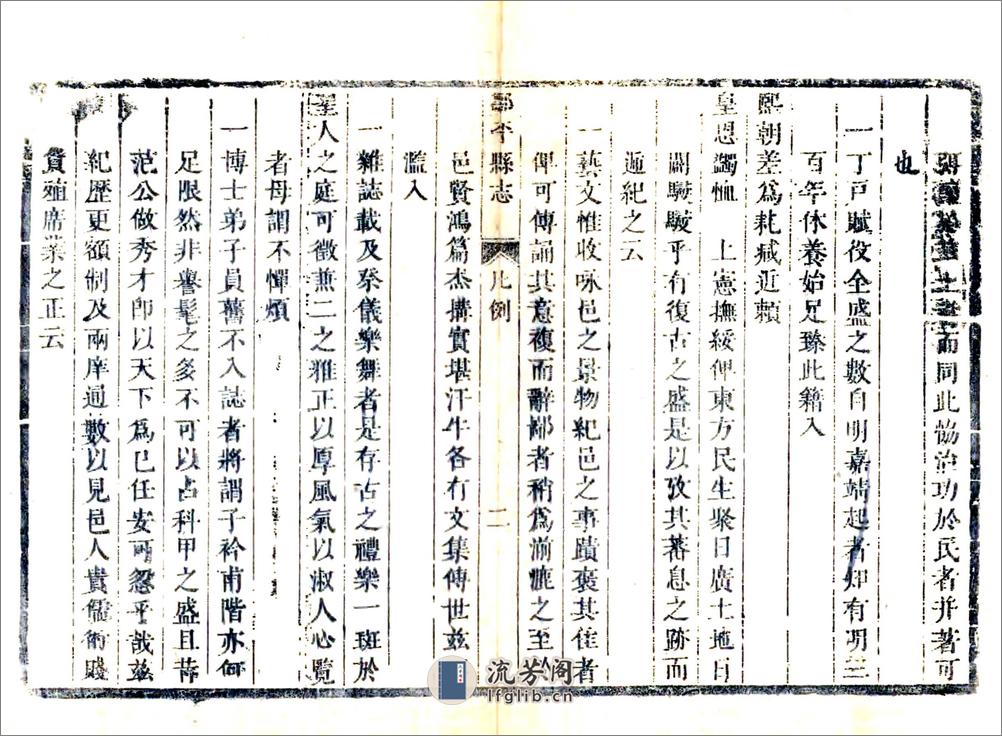 而同此協治功於民者并著可
也
一丁戸賦役全盛之數自明嘉靖起者知有明三
百年休養始足臻此籍入
熙朝差爲耗減近賴
皇恩蠲恤 上憲撫綏俾東方民生聚日廣土地日
闢駸駸乎有復古之盛是以攷其蕃息之跡而
逓紀之云
一藝文惟收咏邑之景物紀邑之事蹟裒其佳者
俾可傳誦其意複而辭鄙者稍爲湔漉之至於
邑賢鴻篇杰搆實堪汗牛各有文集傳世兹
濫入
一雜誌載及祭儀樂舞者是存古之禮樂一斑於
聖人之庭可徵兼二之雅正以厚風氣以淑人心覽
者毋謂不憚煩
一博士弟子員舊不入誌者將謂子衿甫階亦何
足限然非譽髦之多不可以占科甲之盛且昔
范公做秀才卽以天下爲已任安可忽乎哉兹
紀歴更額制及兩庠通數以見邑人貴儒術賤
貨殖席業之正云
鄒平縣志 凡例 二
流芳阁
lfglib.cn